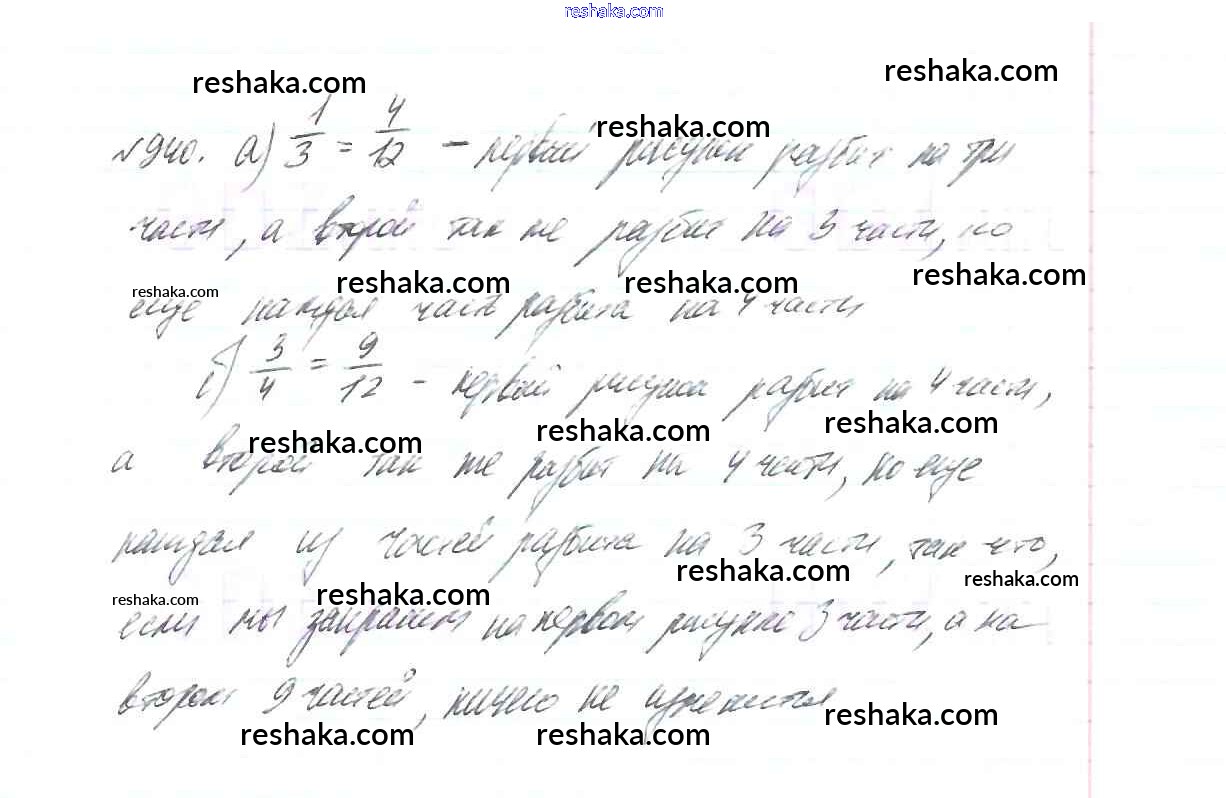 reshaka.com
reshaka.com
reshaka.com
reshaka.com
№940. а) 1/3 = 4/12 – первый рисунок разбит на три
части, а второй так же разбит на 3 части, но
reshaka.com
reshaka.com
reshaka.com
reshaka.com
еще каждая часть разбита на 4 части
б) 3/4 = 9/12 – первый рисунок разбит на 4 части,
reshaka.com
reshaka.com
reshaka.com
а второй так же разбит на 4 части, но еще
каждая из частей разбита на 3 части, так что,
reshaka.com
reshaka.com
reshaka.com
reshaka.com
если мы закрасим на первом рисунке 3 части, а на
втором 9 частей, ничего не изменится
reshaka.com
reshaka.com
reshaka.com